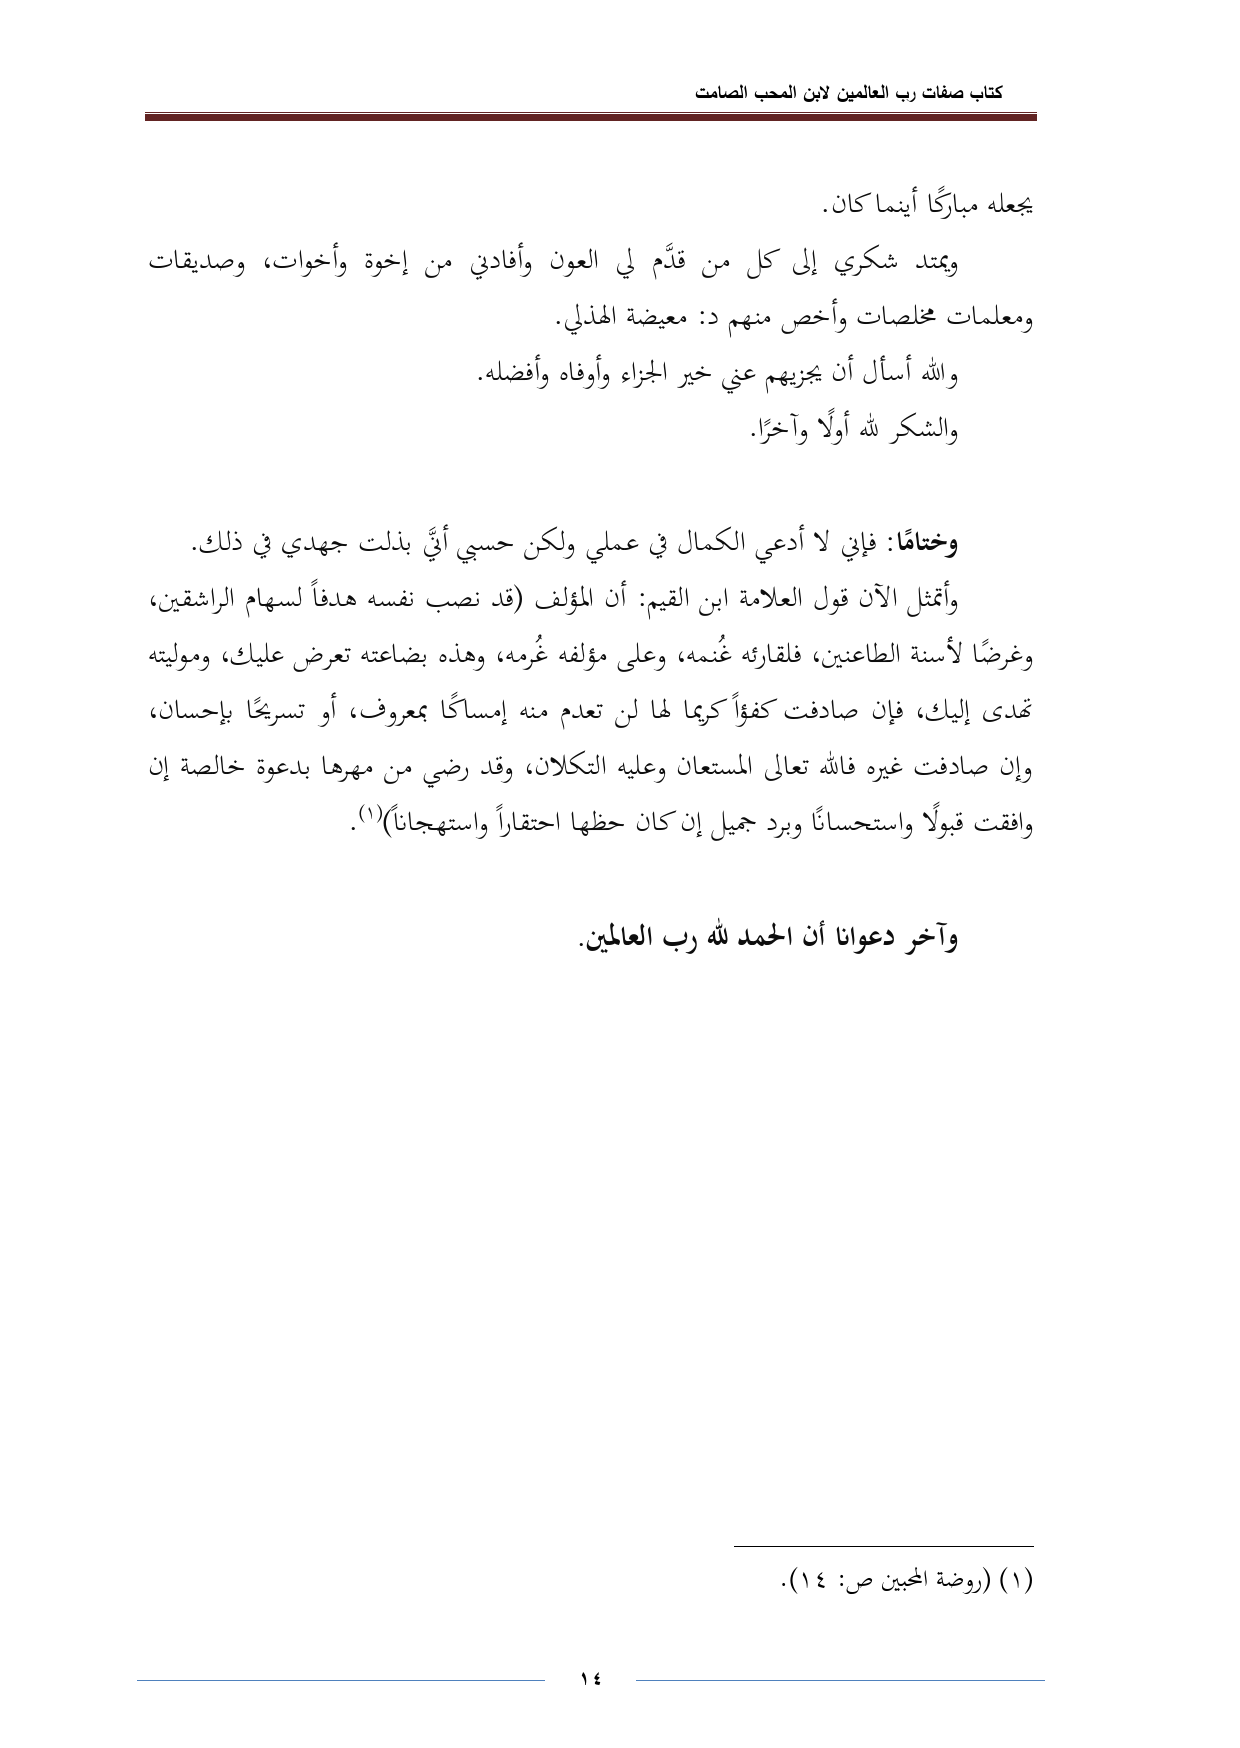 كتاب صفات رب العالمين لابن المحب الصامت
يجعله مباركًا أينما كان.
ويمتد شكري إلى كل من قدَّم لي العون وأفادني من إخوة وأخوات، وصديقات
ومعلمات مخلصات وأخص منهم د: معيضة الهذلي.
والله أسأل أن يجزيهم عني خير الجزاء وأوفاه وأفضله.
والشكر لله أولًا وآخرًا.
وختامًا: فإني لا أدعي الكمال في عملي ولكن حسبي أنيَّ بذلت جهدي في ذلك.
وأتمثل الآن قول العلامة ابن القيم: أن المؤلف (قد نصب نفسه هدفاً لسهام الراشقين،
وغرضًا لأسنة الطاعنين، فلقارئه غُنمه، وعلى مؤلفه غُرمه، وهذه بضاعته تعرض عليك، وموليته
تهدى إليك، فإن صادفت كفؤاً كريما لها لن تعدم منه إمساكًا بمعروف، أو تسريحًا بإحسان،
وإن صادفت غيره فالله تعالى المستعان وعليه التكلان، وقد رضي من مهرها بدعوة خالصة إن
وافقت قبولًا واستحسانًا وبرد جميل إن كان حظها احتقاراً واستهجاناً)(١).
وآخر دعوانا أن الحمد لله رب العالمين.
(١) (روضة المحبين ص: ١٤).
١٤